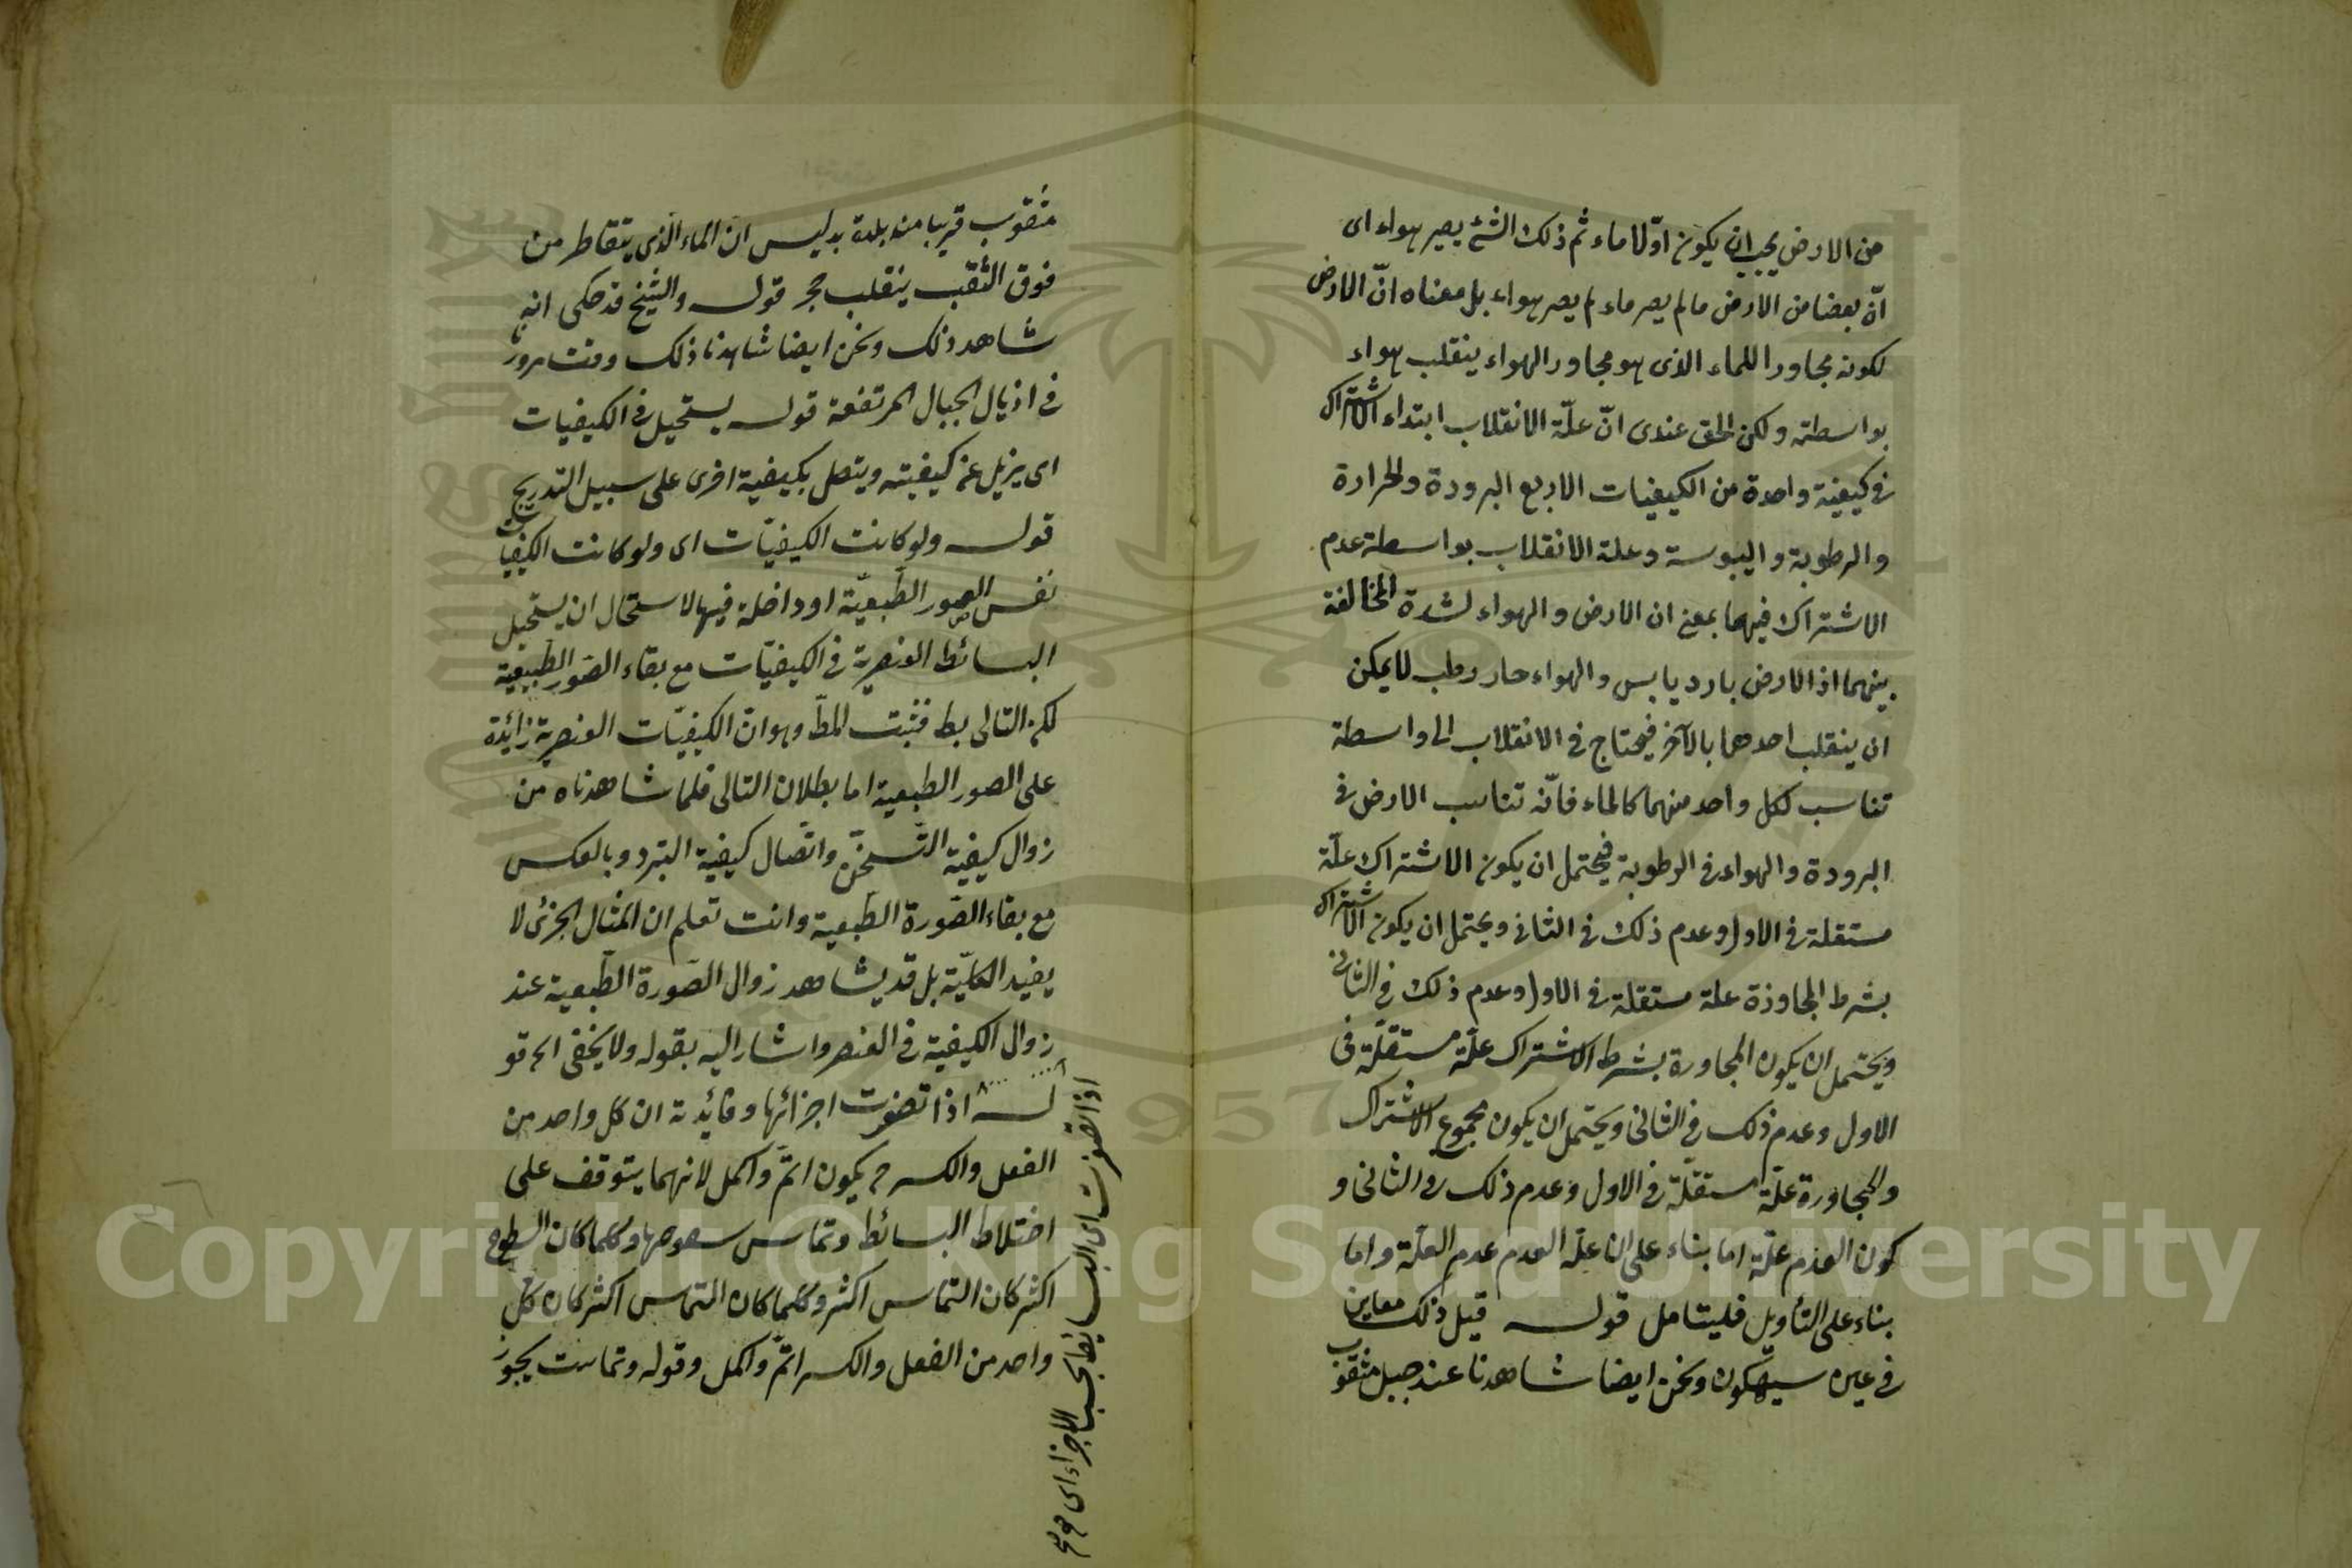 من الارض يجب ان يكون اوّلا ماء ثم ذلك الشئ يصير هواء اى
انّ بعضا من الارض ما لم يصر ماء لم يصر هواء بل معناه انّ الارض
لكونه مجاورا للماء الذى هو مجاور الهواء ينقلب هواء
بواسطته ولكن الحق عندى انّ علّة الانقلاب ابتداء الاشتراك
فى كيفية واحدة من الكيفيات الاربع البرودة والحرارة
والرطوبة واليبوسة وعلة الانقلاب بواسطة عدم
الاشتراك فيهما بمعنى ان الارض والهواء لشدة المخالفة
بينهما اذ الارض بارد يابس والهواء حار رطب لا يمكن
ان ينقلب احدهما بالآخر فيحتاج فى الانقلاب الى واسطة
تناسب لكل واحد منهما كالماء فانّه تناسب الارض فى
البرودة والهواء فى الرطوبة فيحتمل ان يكون الاشتراك علّة
مستقلة فى الاول وعدم ذلك فى الثانى ويحتمل ان يكون الاشتراك
بشرط المجاوزة علة مستقلة فى الاول وعدم ذلك فى الثانى
ويحتمل ان يكون المجاورة بشرط الاشتراك علّة مستقلّة فى
الاول وعدم ذلك فى الثانى ويحتمل ان يكون مجموع الاشتراك
والمجاورة علّة مستقلّة فى الاول وعدم ذلك فى الثانى و
كون العدم علّة اما بناء على ان علّة العدم عدم العلّة واما
بناء على التأويل فليتامل قوله قيل ذلك معاين
فى عين سيهكون ونحن ايضا شاهدنا عند جبل مثقوب
مثقوب قريبا منه بلدة بدليس ان الماء الذى يتقاطر من
فوق الثقب ينقلب حجر قوله والشيخ قد حكى انه
شاهد ذلك ونحن ايضا شاهدنا ذلك وقت مرورنا
فى اذيال الجبال المرتفعة قوله يستحيل فى الكيفيات
اى يزيل عن كيفيته ويتصل بكيفية اخرى على سبيل التدريج
قوله ولو كانت الكيفيّات اى ولو كانت الكيفيات
نفس الصور الطّبعيّة او داخلة فيها لاستحال ان يستحيل
البسائط العنصرية فى الكيفيّات مع بقاء الصّور الطّبيعية
لكن التالى بط فثبت المطّ وهو انّ الكيفيّات العنصرية زائدة
على الصور الطبعية اما بطلان التالى فلما شاهدناه من
زوال كيفية التّسخّن واتّصال كيفية التبرد وبالعكس
مع بقاء الصّورة الطّبعية وانت تعلم ان المثال الجزئى لا
يفيد الكليّة بل قد يشاهد زوال الصّورة الطّبعية عند
زوال الكيفية فى العنصر واشار اليه بقوله ولا يخفى الخ قو
له اذا تصغرت اجزائها وفائدته ان كل واحد من
الفعل والكسر ح يكون اتمّ واكمل لانهما يتوقف على
اختلاط البسائط وتماس سطوحها وكلما كان السطوح
اكثر كان التماس اكثر وكلما كان التماس اكثر كان كل
واحد من الفعل والكسر اتمّ واكمل وقوله وتماست يجوز
اذا تصغرت اى البسائط بحسب الاجزاء اى